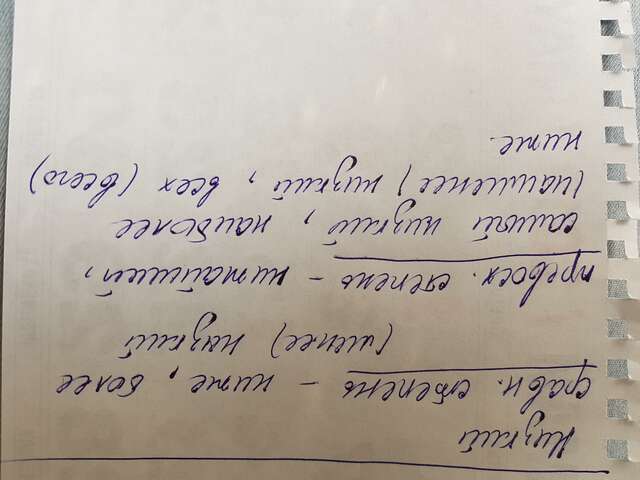 Низкий
сравн. степень – ниже, более
(менее) низкий
превосх. степень – нижайший,
самый низкий, наиболее
(наименее) низкий, всех (всего)
ниже.